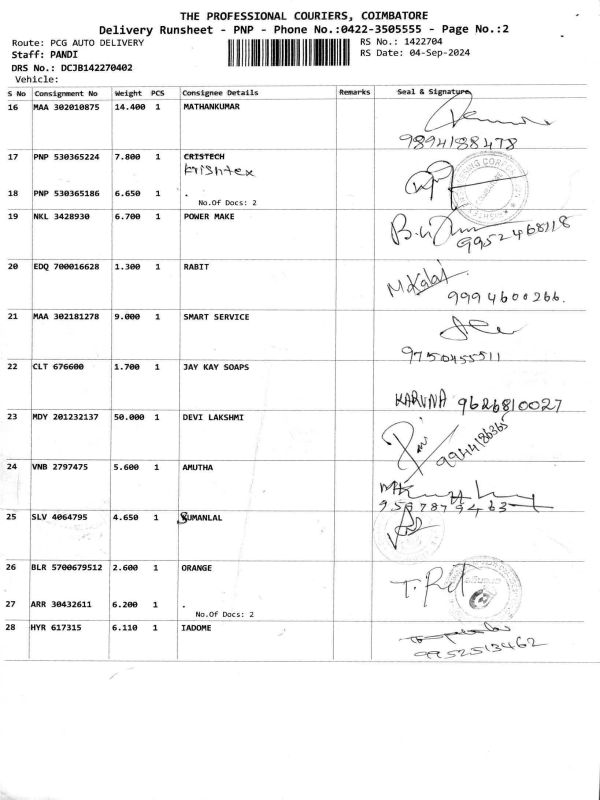 THE PROFESSIONAL COURIERS, COIMBATORE
Delivery Runsheet - PNP - Phone No.:0422-3505555 - Page No.:2
Route: PCG AUTO DELIVERY
RS No.: 1422704
Staff: PANDI
RS Date: 04-Sep-2024
DRS No.: DCJB142270402
Vehicle:
S No Consignment No Weight PCS Consignee Details Remarks Seal & Signature
16 MAA 302010875 14.400 1 MATHANKUMAR
9894188478
17 PNP 530365224 7.800 1 CRISTECH
Krishtex
18 PNP 530365186 6.650 1 .
No.Of Docs: 2
19 NKL 3428930 6.700 1 POWER MAKE
9952468118
20 EDQ 700016628 1.300 1 RABIT
M.Kalai
9994600266.
21 MAA 302181278 9.000 1 SMART SERVICE
9750455511
22 CLT 676600 1.700 1 JAY KAY SOAPS
KARUNA 9626810027
23 MDY 201232137 50.000 1 DEVI LAKSHMI
9944186365
24 VNB 2797475 5.600 1 AMUTHA
9587879463
25 SLV 4064795 4.650 1 SUMANLAL
26 BLR 5700679512 2.600 1 ORANGE
27 ARR 30432611 6.200 1 .
No.Of Docs: 2
28 HYR 617315 6.110 1 IADOME
9952513462